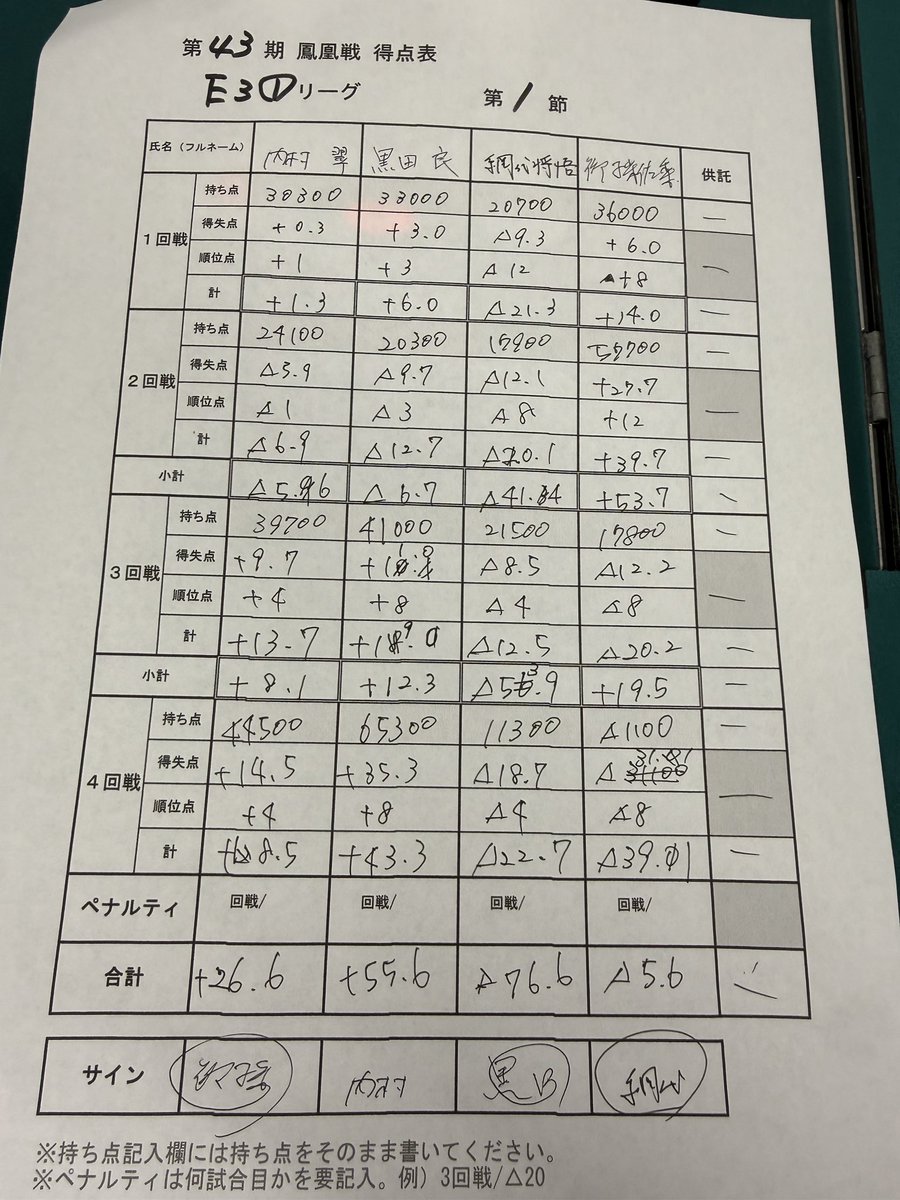 第43期 鳳凰戦 得点表
E3①リーグ 第1節
氏名（フルネーム） 内村 翠 黒田 良 網代将悟 供託
1回戦
持ち点 30300 33000 20700 36000 —
得失点 +0.3 +3.0 △9.3 +6.0
順位点 +1 +3 △12 +8 —
計 +1.3 +6.0 △21.3 +14.0 —
2回戦
持ち点 24100 20300 17900 57700 —
得失点 △5.9 △9.7 △12.1 +27.7
順位点 △1 △3 △8 +12 —
計 △6.9 △12.7 △20.1 +39.7 —
小計 △5.6 △6.7 △41.4 +53.7 —
3回戦
持ち点 39700 41000 21500 17800 —
得失点 +9.7 +11.0 △8.5 △12.2
順位点 +4 +8 △4 △8 —
計 +13.7 +19.0 △12.5 △20.2 —
小計 +8.1 +12.3 △53.9 +19.5 —
4回戦
持ち点 44500 65300 11300 △1100 —
得失点 +14.5 +35.3 △18.7 △31.1
順位点 +4 +8 △4 △8 —
計 +18.5 +43.3 △22.7 △39.1 —
ペナルティ 回戦/ 回戦/ 回戦/ 回戦/
合計 +26.6 +55.6 △76.6 △5.6
サイン 内村 黒田 網代
※持ち点記入欄には持ち点をそのまま書いてください。
※ペナルティは何試合目かを要記入。例）3回戦/△20